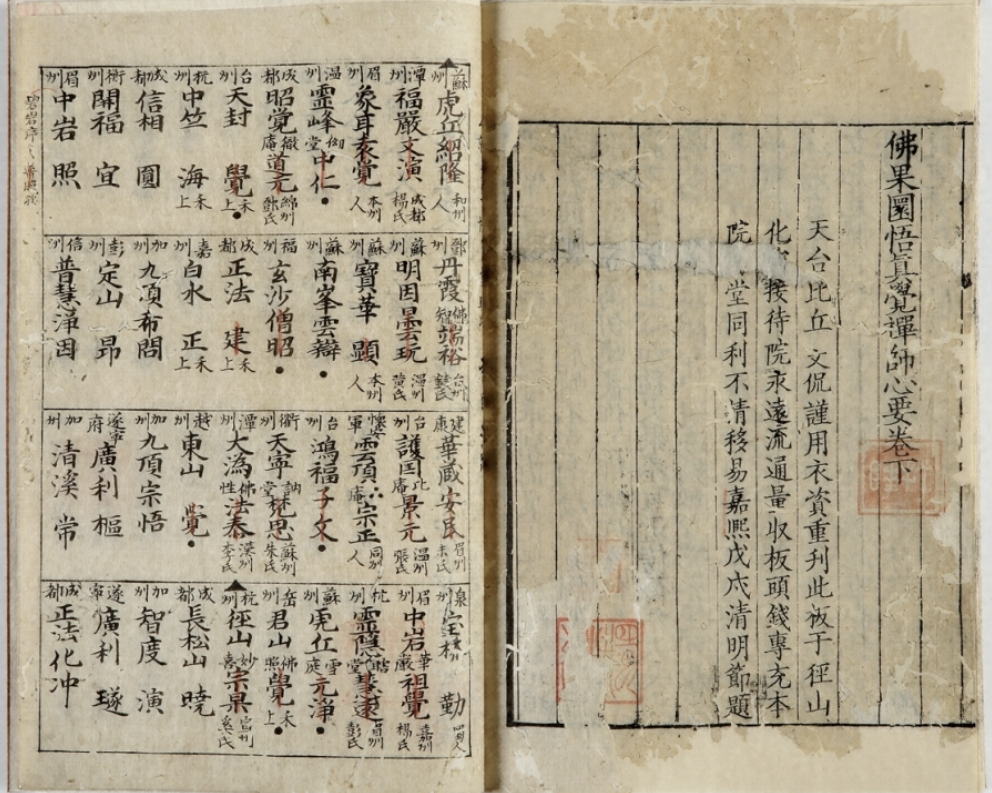 佛果圜悟眞覺禪師心要卷下
天台比丘 文侃謹用衣資重刊此板于徑山
化 接待院永遠流通量收板頭錢專充本
院 堂同利不清移易嘉熙戊戌清明節題
蘇州虎丘紹隆和州人
潭州福嚴文演成都楊氏
眉州象耳袁覺本州人
温州靈峰堂中仁
成都昭覺徹庵道元綿州鄧氏
台州天封 覺未上
杭州中竺 海未上
成都信相 圓
衡州開福 宜
眉州中岩 照
鄧州丹霞佛智端裕台州
蘇州明因曇玩温州黄氏
蘇州寶華 顯本州人
蘇州南峯雲辯
福州玄沙僧昭
成都正法 建未上
嘉州白水 正未上
加州九頂希問
彭州定山 昂
信州普慧淨因
建康華藏安民眉州朱氏
台州護国此庵景元温州張氏
懷安軍雲頂庵宗正同州人
台州鴻福子文
衢州天寧訥堂梵思蘇州朱氏
潭州大溈佛性法泰漢州李氏
越州東山 覺
加州九頂宗悟
遂寧府廣利 樞
加州清溪 常
泉州 勤
眉州中岩華嚴祖覺嘉州楊氏
杭州靈隱瞎堂慧遠眉州彭氏
蘇州虎丘雪庭元淨
岳州君山佛照覺未上
杭州徑山妙喜宗杲宣州奚氏
成都長松山 曉
加州智度 演
遂寧廣利 璲
成都正法化冲